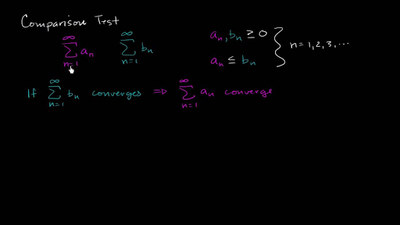 Comparison Test
∞ Σ n=1 aₙ ∞ Σ n=1 bₙ aₙ, bₙ ≥ 0
aₙ ≤ bₙ } n = 1, 2, 3, ...
If ∞ Σ n=1 bₙ converges ⇒ ∞ Σ n=1 aₙ converge